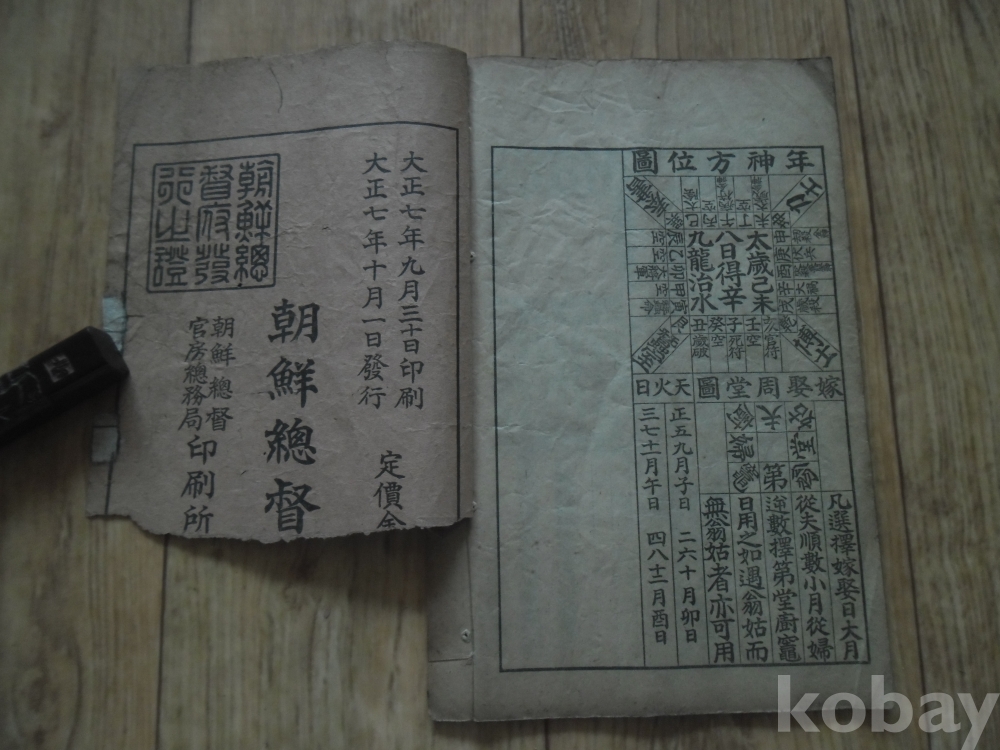 大正七年九月三十日印刷
大正七年十月一日發行
定價金
朝鮮總督
朝鮮總督
官房總務局
印刷所
朝鮮總
督府發
行之證
年神方位圖
太歲己未
八日得辛
九龍治水
博士
力士
奏書
蠶室
嫁娶周堂圖
天火日
夫
姑
堂
翁
第
竈
婦
廚
凡選擇嫁娶日大月
從夫順數小月從婦
逆數擇第堂廚竈
日用之如遇翁姑而
無翁姑者亦可用
正五九月子日
二六十月卯日
三七十一月午日
四八十二月酉日
kobay